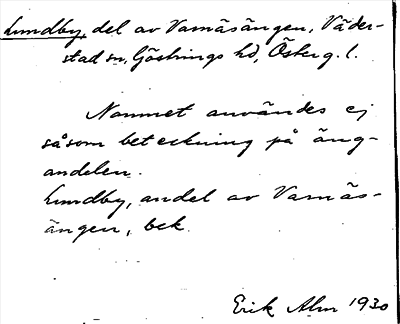 Lundby, del av Varnäsängen, Väder-
stad sn, Göstrings hd, Österg. l.
Namnet användes ej
såsom beteckning på äng-
andelen.
Lundby, andel av Varnäs-
ängen, bek.
Erik Alm 1930